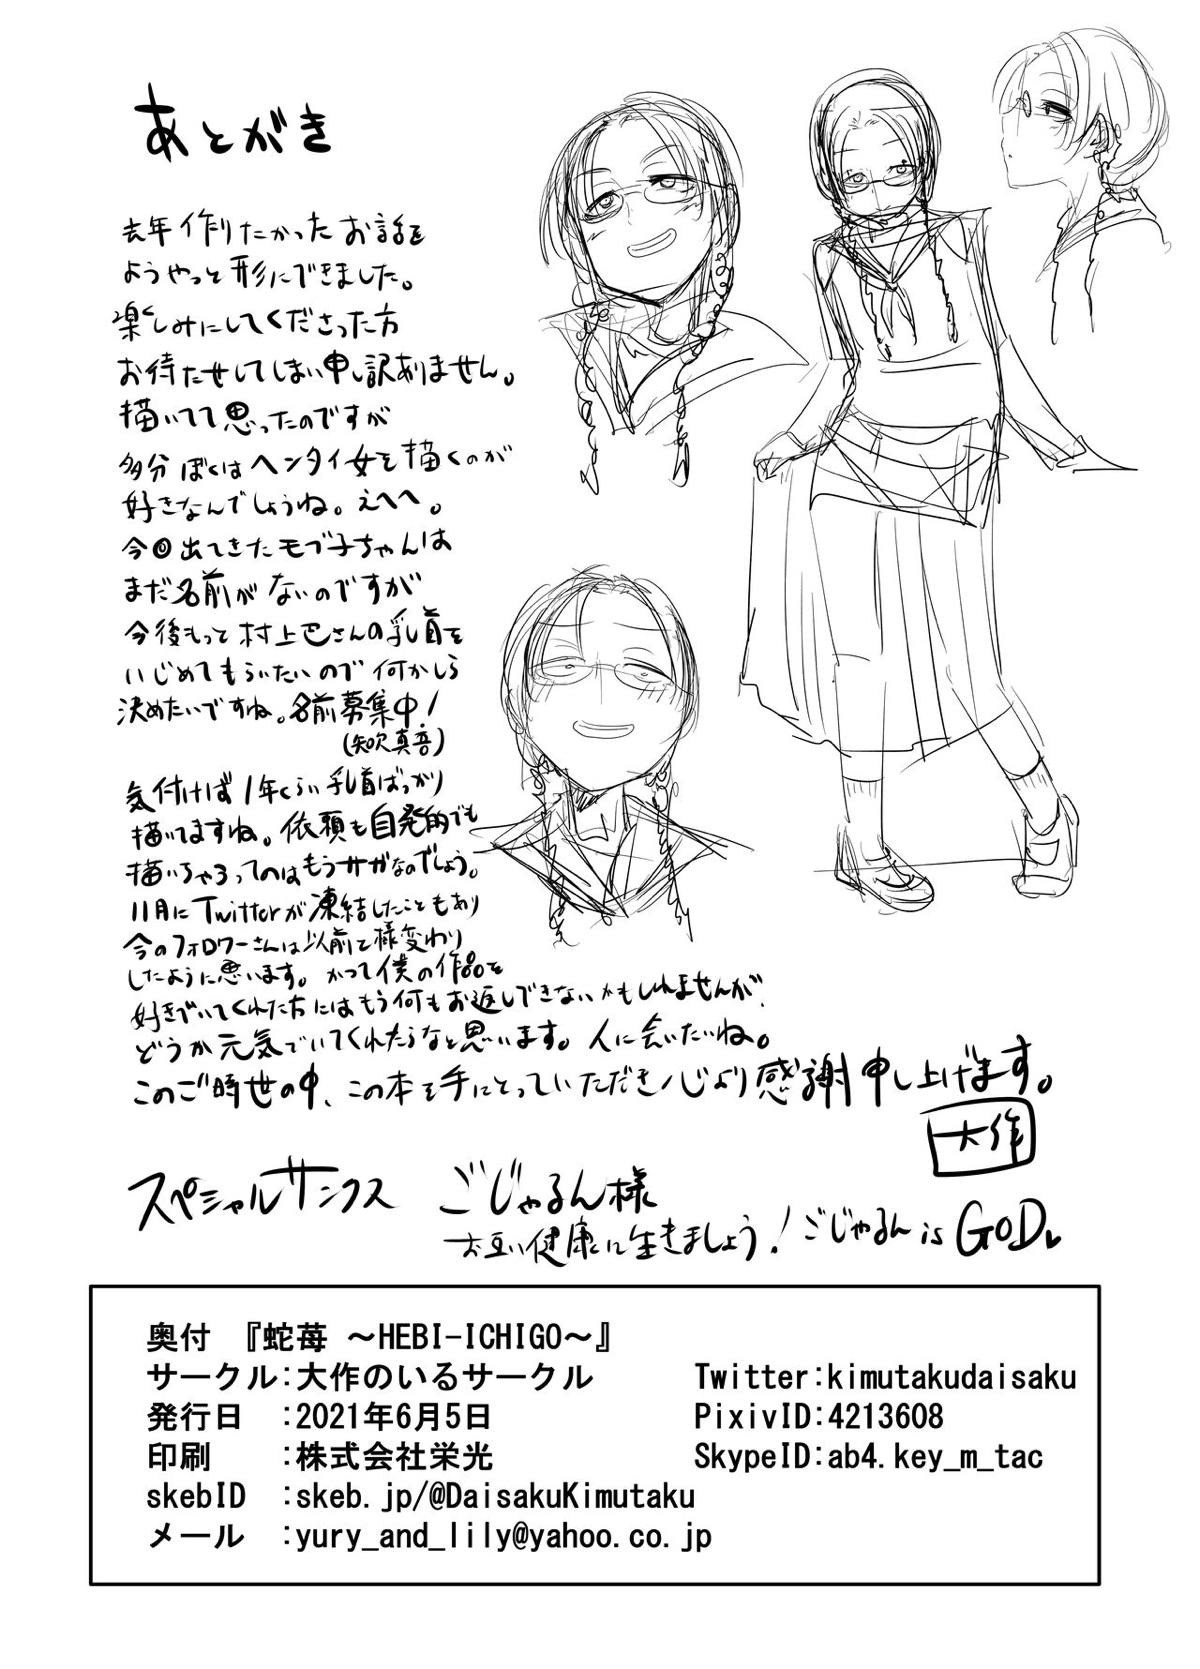 あとがき
去年作りたかったお話を
ようやっと形にできました。
楽しみにしてくださった方
お待たせしてしまい申し訳ありません。
描いてて思ったのですが
多分ぼくはヘンタイ女を描くのが
好きなんでしょうね。えへへ。
今回出てきたモブ子ちゃんは
まだ名前がないのですが
今後もって村上巴さんの乳首を
いじめてもらいたいので何かしら
決めたいですね。名前募集中!
(矢吹真吾)
気付けば1年くらい乳首ばっかり
描いてますね。依頼も自発的でも
描いちゃうってのはもうサガなのでしょう。
11月にTwitterが凍結したこともあり
今のフォロワーさんは以前と様変わり
したように思います。かつて僕の作品を
好きでいてくれた方にはもう何もお返しできないかもしれませんが、
どうか元気でいてくれたらなと思います。人に会いたいね。
このご時世の中、この本を手にとっていただき心より感謝申し上げます。
大作
スペシャルサンクス ごじゃるん様
お互い健康に生きましょう!ごじゃるん is GOD♥
奥付 『蛇苺 ~HEBI-ICHIGO~』
サークル:大作のいるサークル Twitter:kimutakudaisaku
発行日 :2021年6月5日 PixivID:4213608
印刷 :株式会社栄光 SkypeID:ab4.key_m_tac
skebID :skeb.jp/@DaisakuKimutaku
メール :yury_and_lily@yahoo.co.jp